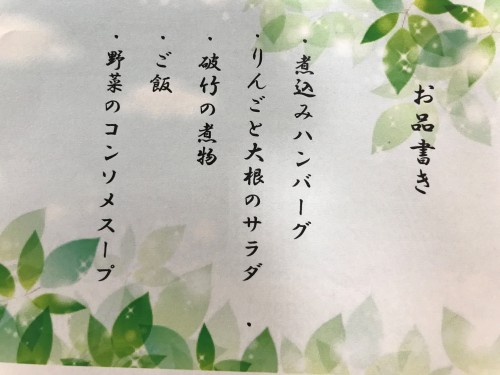 お品書き
・煮込みハンバーグ
・りんごと大根のサラダ・
・破竹の煮物
・ご飯
・野菜のコンソメスープ